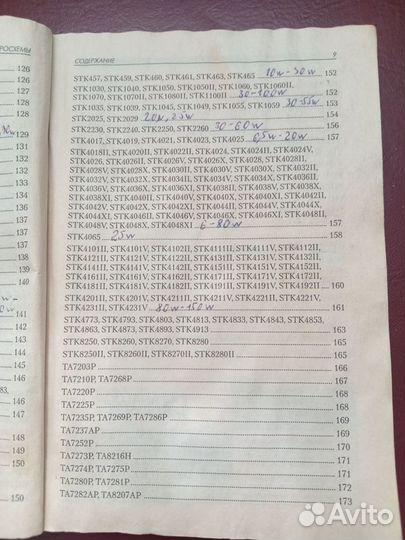 РОСХЕМЫ
126
126
127
128
128
129
132
133
134
135
136
137
139
139
140
141
142
147
148
149
150
150
СОДЕРЖАНИЕ 9
STK457, STK459, STK460, STK461, STK463, STK465 10w-30w 152
STK1030, STK1040, STK1050, STK1050II, STK1060, STK1060II,
STK1070, STK1070II, STK1080II, STK1100II 30-100w 152
STK1035, STK1039, STK1045, STK1049, STK1055, STK1059 30-55w 153
STK2025, STK2029 20w, 25w 154
STK2230, STK2240, STK2250, STK2260 30-60w 156
STK4017, STK4019, STK4021, STK4023, STK4025 6,5w-20w 157
STK4018II, STK4020II, STK4022II, STK4024, STK4024II, STK4024V,
STK4026, STK4026II, STK4026V, STK4026X, STK4028, STK4028II,
STK4028V, STK4028X, STK4030II, STK4030V, STK4030X, STK4032II,
STK4032V, STK4032X, STK4034II, STK4034V, STK4034X, STK4036II,
STK4036V, STK4036X, STK4036XI, STK4038II, STK4038V, STK4038X,
STK4038XI, STK4040II, STK4040V, STK4040X, STK4040XI, STK4042II,
STK4042V, STK4042X, STK4042XI, STK4044II, STK4044V, STK4044X,
STK4044XI, STK4046II, STK4046V, STK4046X, STK4046XI, STK4048II,
STK4048V, STK4048X, STK4048XI 6-80w 157
STK4065 25w 158
STK4101II, STK4101V, STK4102II, STK4111II, STK4111V, STK4112II,
STK4121II, STK4121V, STK4122II, STK4131II, STK4131V, STK4132II,
STK4141II, STK4141V, STK4142II, STK4151II, STK4151V, STK4152II,
STK4161II, STK4161V, STK4162II, STK4171II, STK4171V, STK4172II,
STK4181II, STK4181V, STK4182II, STK4191II, STK4191V, STK4192II 160
STK4201II, STK4201V, STK4211II, STK4211V, STK4221II, STK4221V,
STK4231II, STK4231V 80w-150w 161
STK4773, STK4793, STK4803, STK4813, STK4833, STK4843, STK4853,
STK4863, STK4873, STK4893, STK4913 163
STK8250, STK8260, STK8270, STK8280 165
STK8250II, STK8260II, STK8270II, STK8280II 165
TA7203P 166
TA7210P, TA7268P 166
TA7220P 168
TA7225P 168
TA7235P, TA7269P, TA7286P 169
TA7237AP 169
TA7252P 170
TA7273P, TA8216H 171
TA7274P, TA7275P 171
TA7280P, TA7281P 172
TA7282AP, TA8207AP 173
Avito